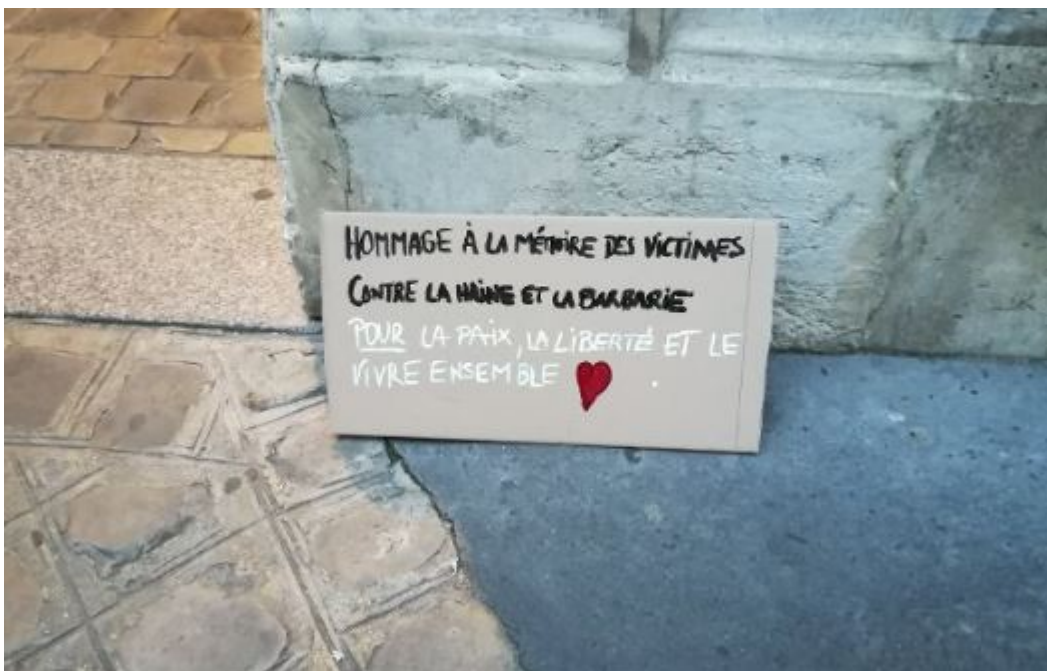 HOMMAGE À LA MÉMOIRE DES VICTIMES
CONTRE LA HAINE ET LA BARBARIE
POUR LA PAIX, LA LIBERTÉ ET LE
VIVRE ENSEMBLE